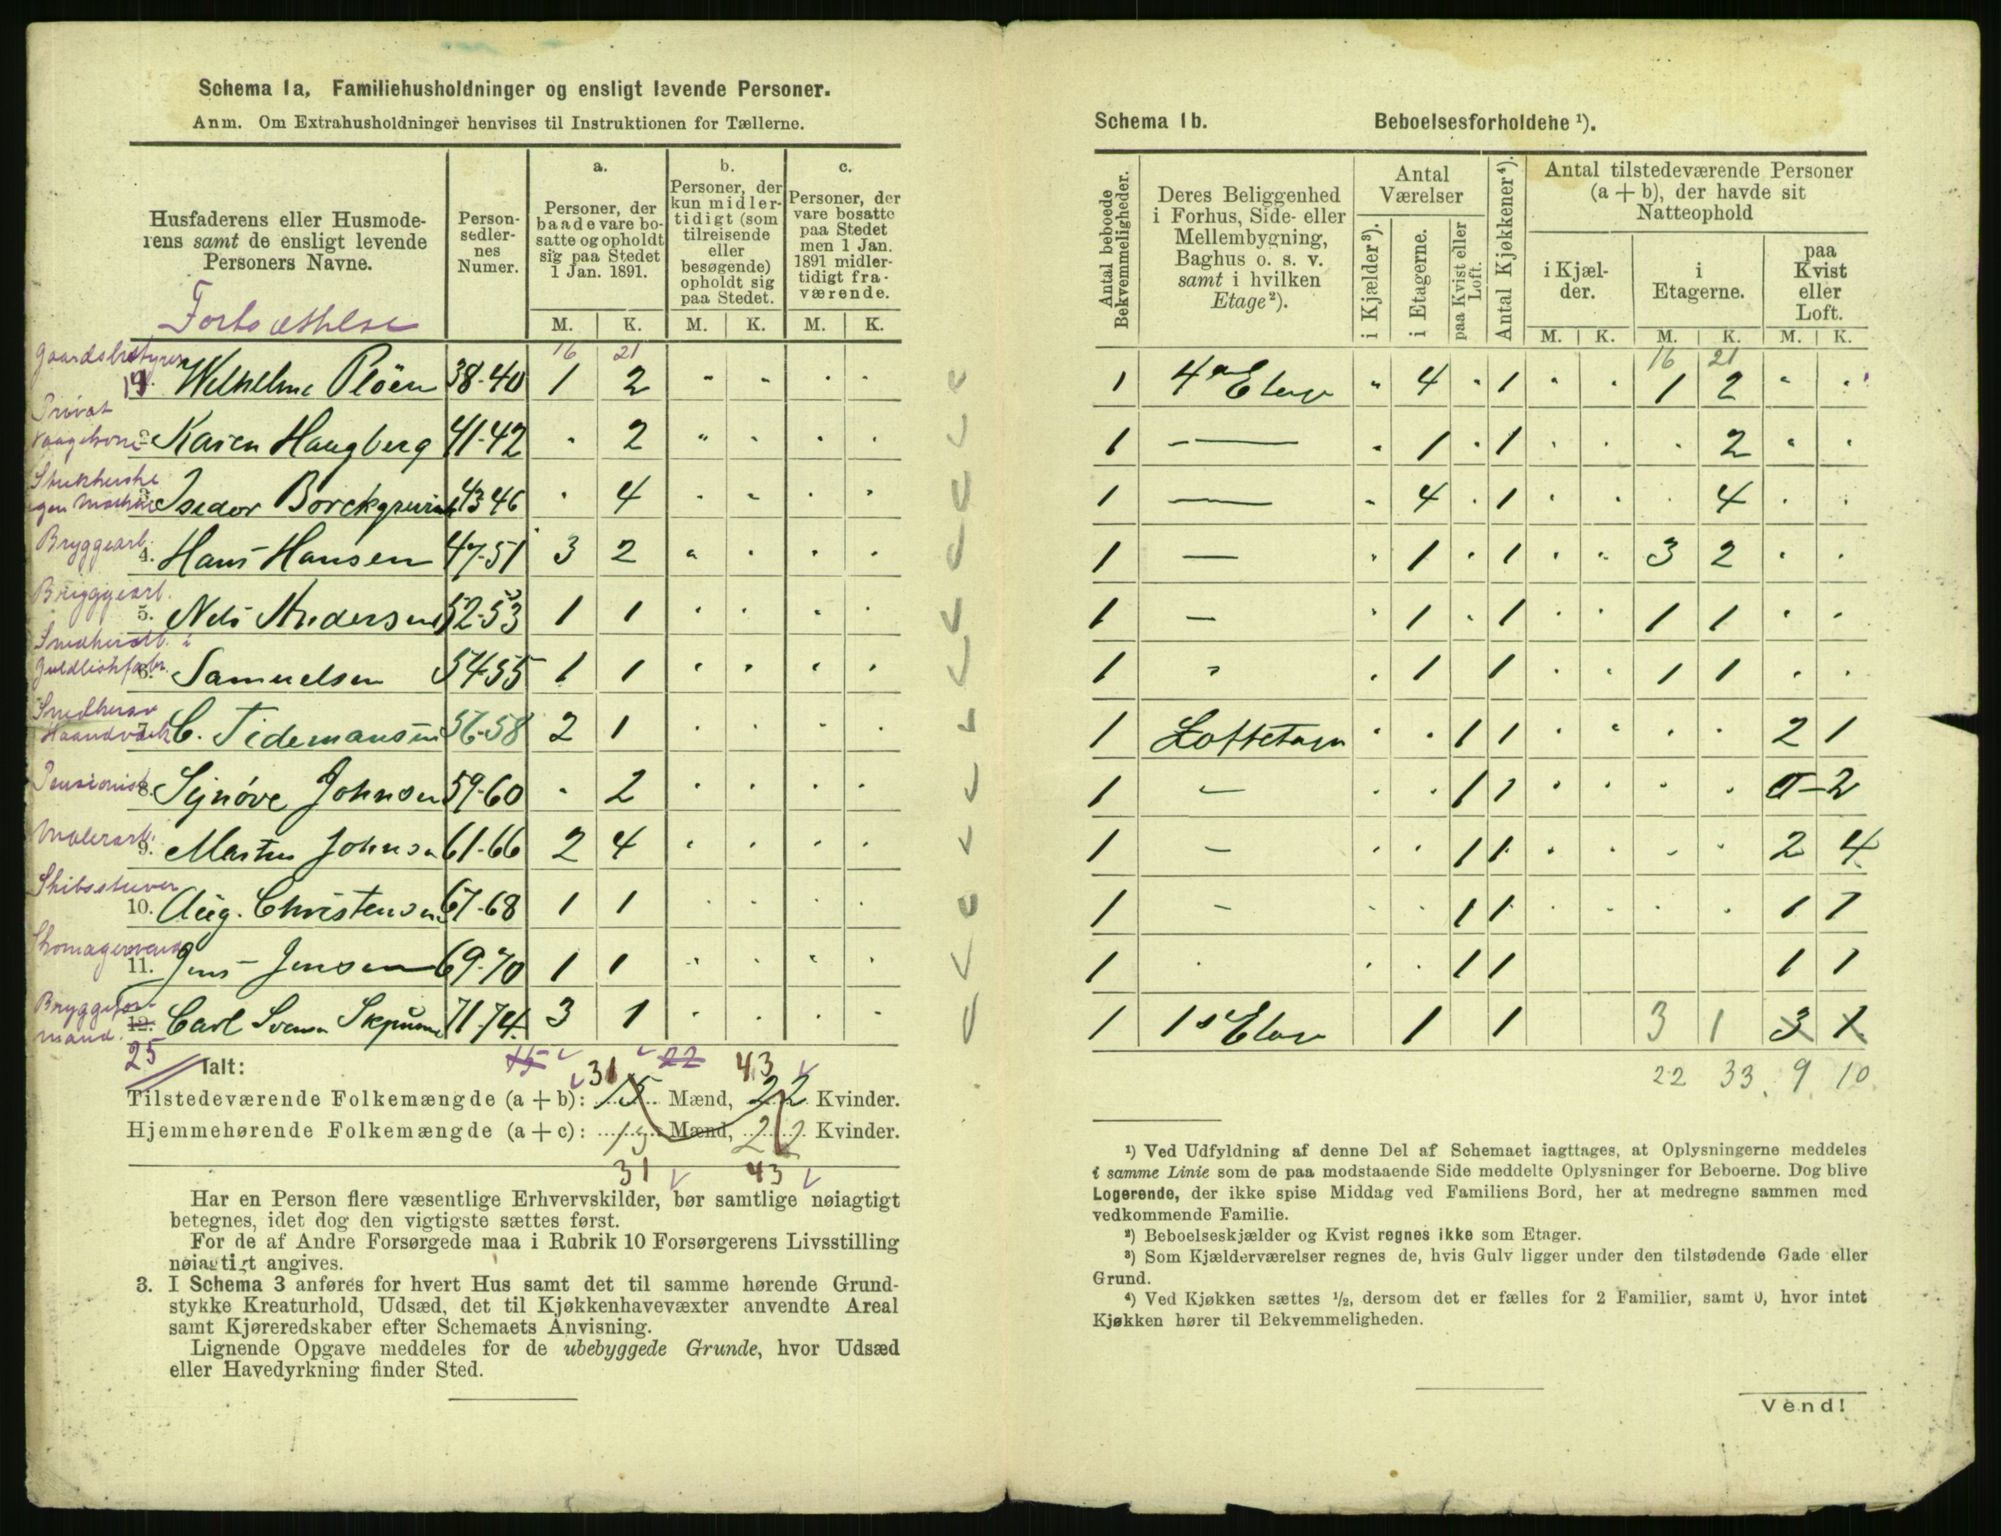 Schema 1a. Familiehusholdninger og ensligt levende Personer.
Anm. Om Extrahusholdninger henvises til Instruktionen for Tællerne.
Husfaderens eller Husmoderens samt de ensligt levende Personers Navne.
Personsedlernes Numer.
a. Personer, der baade vare bosatte og opholdt sig paa Stedet 1 Jan. 1891.
b. Personer, der kun midlertidigt (som tilreisende eller besøgende) opholdt sig paa Stedet.
c. Personer, der vare bosatte paa Stedet men 1 Jan. 1891 midlertidigt fraværende.
Fortsættelse
M. K. M. K. M. K.
16 21
Gaardsbestyrer
14. Wilhelme Pløen 38-40 1 2 " " . .
Privat
2. Karen Haugberg 41-42 . 2 " . . .
3. Isedor Borckgrevink 43-46 . 4 . . . .
Bryggearb.
4. Hans Hansen 47-51 3 2 " . . .
Bryggearb.
5. Nels Andersen 52-53 1 1 . . . .
Snedkerarb. i
Guldlistfabr.
6. Samuelsen 54-55 1 1 . . . .
7. C. Tidemansen 56-58 2 1 . . . .
Pensionist
8. Synøve Johnsen 59-60 . 2 . . . .
Malerarb.
9. Martin Johnsen 61-66 2 4 . . . .
Skibsstuver
10. Aug. Christensen 67-68 1 1 . . . .
Skomagersvend
11. Jens Jensen 69-70 1 1 . . . .
Bryggeformand.
12. Carl Svensen 71-74. 3 1 . . . .
25 Ialt: 15 22
31 43
Tilstedeværende Folkemængde (a + b): 15 Mænd, 22 Kvinder.
Hjemmehørende Folkemængde (a + c): 15 Mænd, 22 Kvinder.
31 43
Har en Person flere væsentlige Erhvervskilder, bør samtlige nøiagtigt
betegnes, idet dog den vigtigste sættes først.
For de af Andre Forsørgede maa i Rubrik 10 Forsørgerens Livsstilling
nøiagtigt angives.
3. I Schema 3 anføres for hvert Hus samt det til samme hørende Grund-
stykke Kreaturhold, Udsæd, det til Kjøkkenhavevæxter anvendte Areal
samt Kjøreredskaber efter Schemaets Anvisning.
Lignende Opgave meddeles for de ubebyggede Grunde, hvor Udsæd
eller Havedyrkning finder Sted.
Schema 1b. Beboelsesforholdene ¹).
Antal beboede Bekvemmeligheder.
Deres Beliggenhed i Forhus, Side- eller Mellembygning, Baghus o. s. v. samt i hvilken Etage ²).
Antal Værelser
i Kjælder ³).
i Etagerne.
paa Kvist eller Loft.
Antal Kjøkkener ⁴).
Antal tilstedeværende Personer (a + b), der havde sit Natteophold
i Kjælder.
i Etagerne.
paa Kvist eller Loft.
M. K. M. K. M. K.
16 21
1 4de Etage " 4 . 1 . . 1 2 " .
1 — . 1 . 1 . . . 2 . .
1 — " 4 . 1 . . . 4 . .
1 — . 1 . 1 . . 3 2 . .
1 — . 1 . 1 . . 1 1 . .
1 " . 1 1 . . 1 1 . .
1 Loftetage . . 1 1 . . . . 2 1
1 — . . 1 1 . . . . 0 - 2
1 — . . 1 1 . . . . 2 4
1 — . . 1 1 . . . . 1 1
1 . . . 1 1 1 1
1 1ste Etage 1 1 3 1 3 1
22 33 9 10
¹) Ved Udfyldning af denne Del af Schemaet iagttages, at Oplysningerne meddeles
i samme Linie som de paa modstaaende Side meddelte Oplysninger for Beboerne. Dog blive
Logerende, der ikke spise Middag ved Familiens Bord, her at medregne sammen med
vedkommende Familie.
²) Beboelseskjælder og Kvist regnes ikke som Etager.
³) Som Kjælderværelser regnes de, hvis Gulv ligger under den tilstødende Gade eller
Grund.
⁴) Ved Kjøkken sættes ½, dersom det er fælles for 2 Familier, samt 0, hvor intet
Kjøkken hører til Bekvemmeligheden.
Vend!